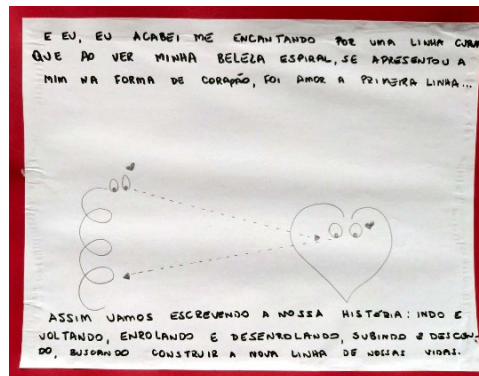 E EU, EU ACABEI ME ENCANTANDO POR UMA LINHA CURVA
QUE AO VER MINHA BELEZA ESPIRAL, SE APRESENTOU A
MIM NA FORMA DE CORAÇÃO, FOI AMOR A PRIMEIRA LINHA...
ASSIM VAMOS ESCREVENDO A NOSSA HISTÓRIA: INDO E
VOLTANDO, ENROLANDO E DESENROLANDO, SUBINDO E DESCEN-
DO, BUSCANDO CONSTRUIR A NOVA LINHA DE NOSSAS VIDAS.